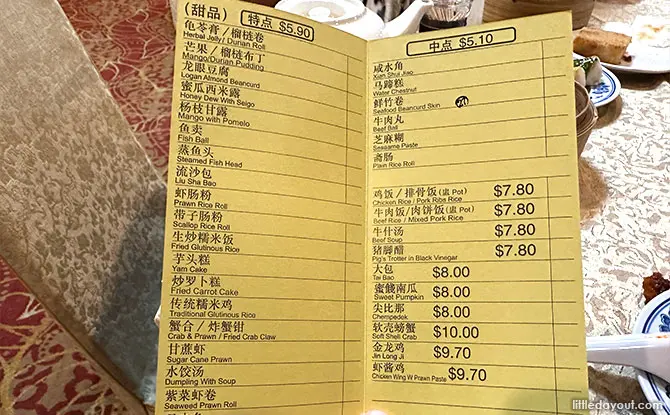 (甜品) 特点 $5.90
龟苓膏 / 榴梿卷
Herbal Jelly / Durian Roll
芒果 / 榴梿布丁
Mango/Durian Pudding
龙眼豆腐
Logan Almond Beancurd
蜜瓜西米露
Honey Dew With Seigo
杨枝甘露
Mango with Pomelo
鱼卖
Fish Ball
蒸鱼头
Steamed Fish Head
流沙包
Liu Sha Bao
虾肠粉
Prawn Rice Roll
带子肠粉
Scallop Rice Roll
生炒糯米饭
Fried Glutinous Rice
芋头糕
Yam Cake
炒罗卜糕
Fried Carrot Cake
传统糯米鸡
Traditional Glutinous Rice
蟹合 / 炸蟹钳
Crab & Prawn / Fried Crab Claw
甘蔗虾
Sugar Cane Prawn
水饺汤
Dumpling With Soup
紫菜虾卷
Seaweed Prawn Roll
中点 $5.10
咸水角
Xian Shui Jiao
马蹄糕
Water Chestnut
鲜竹卷
Seafood Beancurd Skin
牛肉丸
Beef Ball
芝麻糊
Sesame Paste
斋肠
Plain Rice Roll
鸡饭 / 排骨饭(盅 Pot) $7.80
Chicken Rice / Pork Ribs Rice
牛肉饭/肉饼饭(盅 Pot) $7.80
Beef Rice / Mixed Pork Rice
牛什汤 $7.80
Beef Soup
猪脚醋 $7.80
Pig's Trotter in Black Vinegar
大包 $8.00
Tai Bao
蜜餞南瓜 $8.00
Sweet Pumpkin
尖比那 $8.00
Chempedek
软壳螃蟹 $10.00
Soft Shell Crab
金龙鸡 $9.70
Jin Long Ji
虾酱鸡 $9.70
Chicken Wing W Prawn Paste
littledayout.com